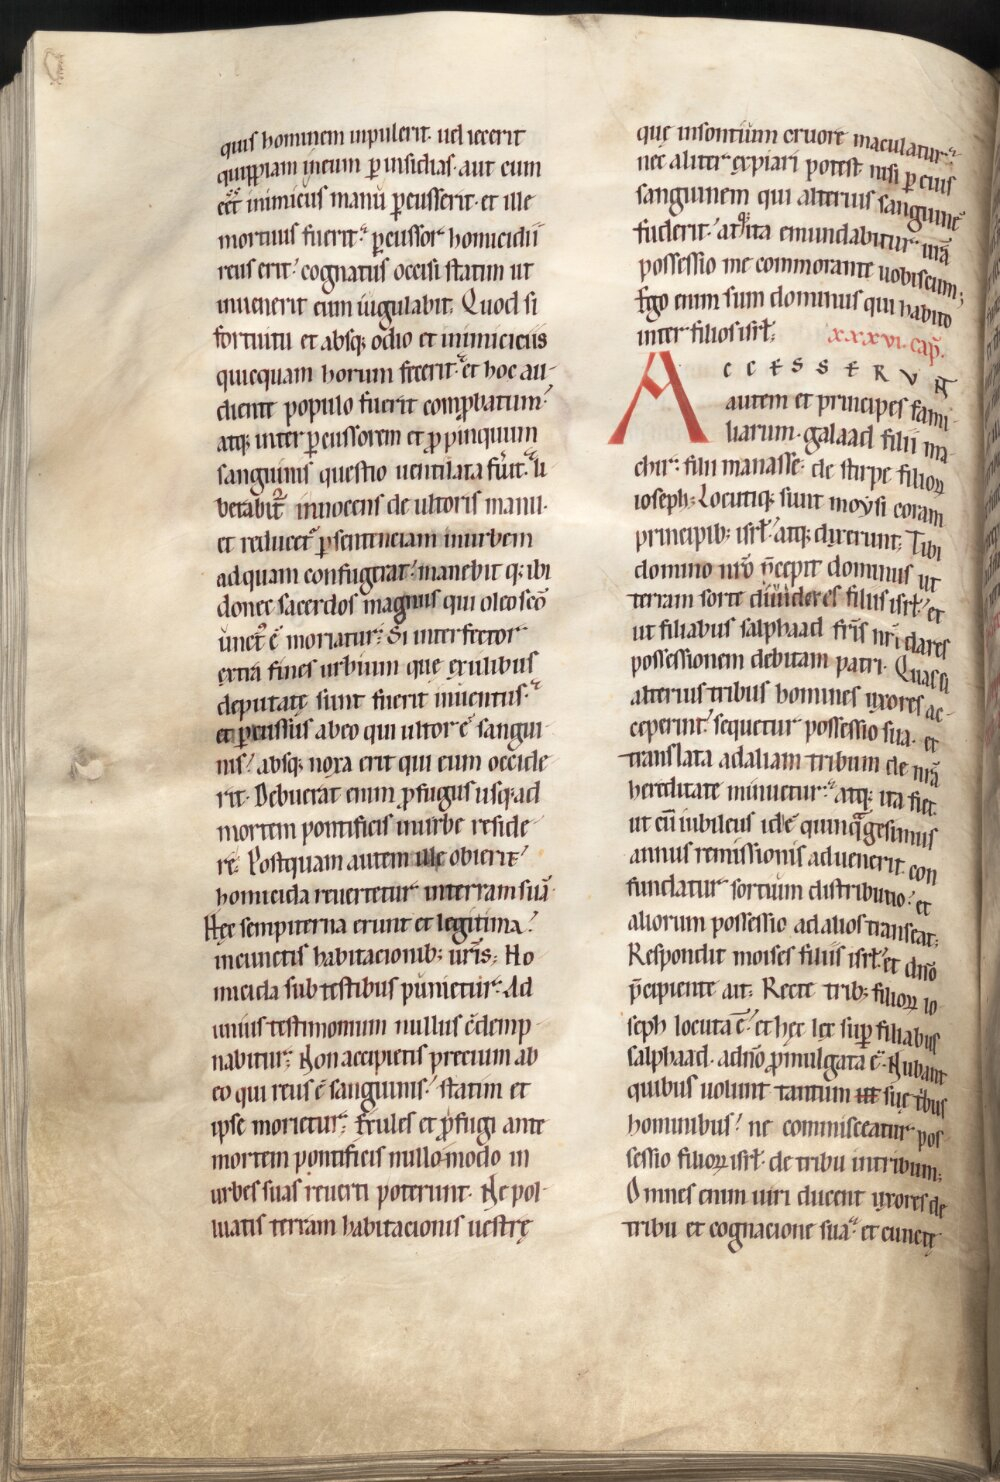 quis hominem inpulerit· uel iecerit
quippiam in eum p̄ insidias· aut cum
eēt inimicus manū p̄cusserit· et ille
mortuus fuerit· p̄cussor homicidii
reus erit· cognatus occisi statim ut
inuenerit eum iugulabit; Quod si
fortuitu et absq; odio et inimiciciis
quicquam horum fecerit· et hoc au-
diente populo fuerit comp̱batum·
atq; inter p̄cussorem et p̱pinquum
sanguinis questio uentilata fuīt· li
berabit̄ innocens de ultoris manu·
et reducet̄ p̄ sentenciam in urbem
ad quam confugerat· manebit q; ibi
donec sacerdos magnus qui oleo scō
unct̄ ē moriatur; Si interfector
extra fines urbium quę exulibus
deputatę sunt fuerit inuentus·
et p̄cussus ab eo qui ultor ē sangui-
nis· absq; noxa erit qui eum occide-
rit· Debuerat enim p̱fugus usq; ad
mortem pontificis in urbe reside-
re· Postquam autem ille obierit·
homicida reuertetur in terram suā·
Hęc sempiterna erunt et legitima·
in cunctis habitacionib; ur̄is; Ho
micida sub testibus punietur· Ad
unius testimonium nullus c̄demp-
nabitur; Non accipietis precium ab
eo qui reus ē sanguinis· statim et
ipse morietur; Exules et p̱fugi ante
mortem pontificis nullo modo in
urbes suas reuerti poterunt· Ne pol-
luatis terram habitacionis uestrę
quę insontium cruore maculatur·
nec aliter expiari potest· nisi p̄ eius
sanguinem qui alterius sanguinē
fuderit· atq; ita emundabitur ur̄a
possessio me commorante uobiscum;
Ego enim sum dominus qui habito
inter filios isrł; xxxvi· cap̄·
ACCESSERVNT
autem et principes fami-
liarum· galaad filii ma-
chir· filii manasse· de stirpe filioꝝ
ioseph; Locutiq; sunt moysi coram
principib; isrł· atq; dixerunt; Tibi
domino nr̄o p̄cepit dominus ut
terram sorte diuideres filiis isrł· et
ut filiabus salphaad fr̄is nr̄i dares
possessionem debitam patri· Quas si
alterius tribus homines uxores ac-
ceperint· sequetur possessio sua· et
translata ad aliam tribum de nr̄a
hereditate minuetur· atq; ita fiet
ut cū iubileus idē quinq̄gesimus
annus remissionis aduenerit con
fundatur sortium distributio· et
aliorum possessio ad alios transeat;
Respondit moises filiis isrł· et dn̄o
p̄cipiente ait; Recte trib; filioꝝ io
seph locuta ē· et hęc lex sup̄ filiabus
salphaad· a dn̄o p̱mulgata ē· Nubant
quibus uolunt tantum ut suę tribus
hominibus· ne commisceatur pos
sessio filioꝝ isrł· de tribu in tribum;
Omnes enim uiri ducent uxores de
tribu et cognacione sua· et cunctę